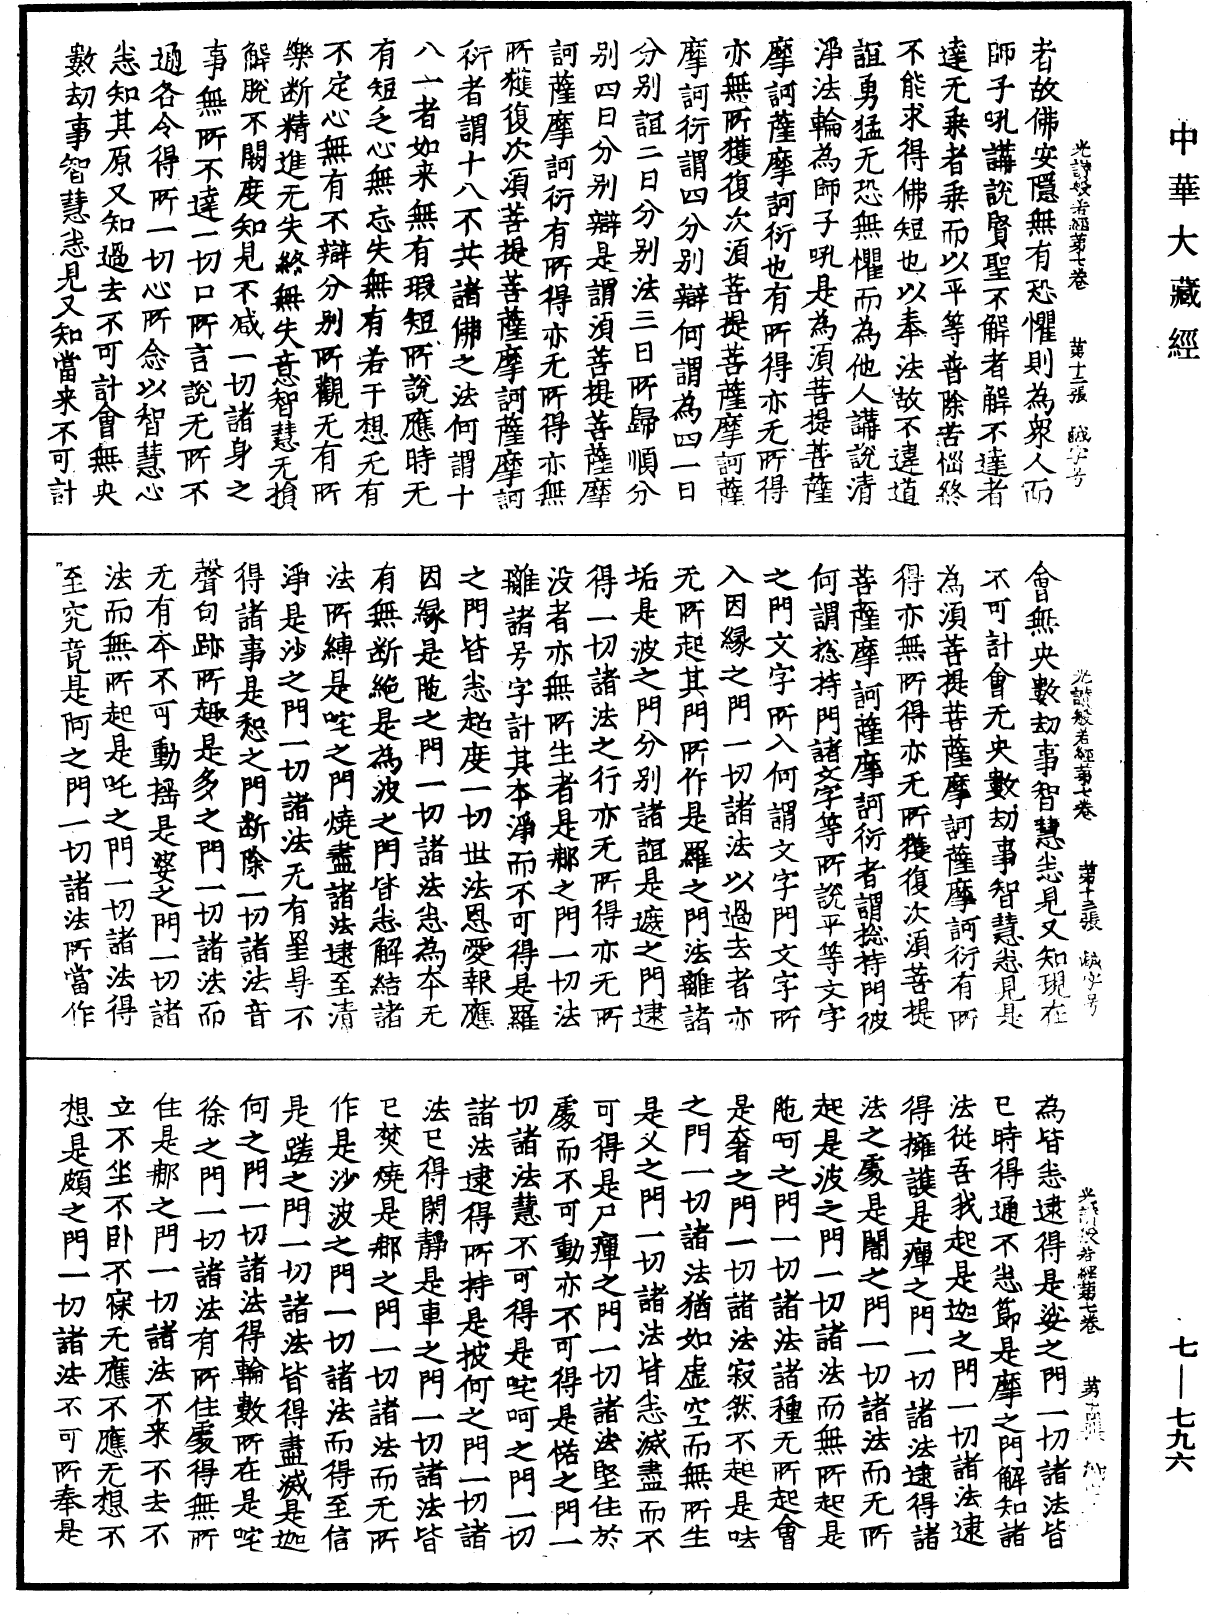 中華大藏經
光讃般若經第七卷　第十二張　誠字号
者故佛安隱無有恐懼則為衆人而
師子吼講說賢聖不解者解不達者
達无乗者乗而以平等普除苦惱終
不能求得佛短也以奉法故不違道
誼勇猛无恐無懼而為他人講說清
淨法輪為師子吼是為湏菩提菩薩
摩訶薩摩訶衍也有所得亦无所得
亦無所獲復次湏菩提菩薩摩訶薩
摩訶衍謂四分别辯何謂為四一曰
分别誼二曰分别法三曰所歸順分
别四曰分别辯是謂湏菩提菩薩摩
訶薩摩訶衍有所得亦无所得亦無
所獲復次湏菩提菩薩摩訶薩摩訶
衍者謂十八不共諸佛之法何謂十
八一者如来無有瑕短所說應時无
有短乏心無忘失無有若干想无有
不定心無有不辯分别所觀无有所
樂断精進无失終無失意智慧无損
解脫不闕度知見不减一切諸身之
事無所不達一切口所言說无所不
通各令得所一切心所念以智慧心
悉知其原又知過去不可計會無央
數劫事智慧悉見又知當来不可計
光讃般若經第七卷　第十三張　誠字号
會無央數劫事智慧悉見又知現在
不可計會无央數劫事智慧悉見是
為湏菩提菩薩摩訶薩摩訶衍有所
得亦無所得亦无所獲復次湏菩提
菩薩摩訶薩摩訶衍者謂捴持門彼
何謂捴持門諸文字等所說平等文字
之門文字所入何謂文字門文字所
入因縁之門一切諸法以過去者亦
无所起其門所作是羅之門法離諸
垢是波之門分别諸誼是遮之門逮
得一切諸法之行亦无所得亦无所
没者亦無所生者是那之門一切法
離諸号字計其本淨而不可得是羅
之門皆悉超度一切世法恩愛報應
因縁是陁之門一切諸法悉為夲无
有無断絶是為波之門皆悉解結諸
法所縛是咤之門燒盡諸法逮至清
淨是沙之門一切諸法无有罣㝵不
得諸事是恕之門断除一切諸法音
聲句跡所趣是多之門一切諸法而
无有夲不可動搖是婆之門一切諸
法而無所起是吒之門一切諸法得
至究竟是阿之門一切諸法所當作
光讃般若經第七卷
為皆悉逮得是娑之門一切諸法皆
已時得通不悉節是摩之門解知諸
法從吾我起是迦之門一切諸法逮
得擁護是癉之門一切諸法逮得諸
法之處是闍之門一切諸法而无所
起是波之門一切諸法而無所起是
陁呵之門一切諸法諸種无所起會
是奢之門一切諸法寂然不起是呿
之門一切諸法猶如虛空而無所生
是叉之門一切諸法皆悉滅盡而不
可得是尸癉之門一切諸法堅住於
處而不可動亦不可得是惹之門一
切諸法慧不可得是咤呵之門一切
諸法逮得所持是披何之門一切諸
法已得閑靜是車之門一切諸法皆
已焚燒是那之門一切諸法而无所
作是沙波之門一切諸法而得至信
是蹉之門一切諸法皆得盡滅是迦
何之門一切諸法得輪數所在是咤
徐之門一切諸法有所住處得無所
住是那之門一切諸法不来不去不
立不坐不卧不寐无應不應无想不
想是頗之門一切諸法不可所奉是
七—七九六